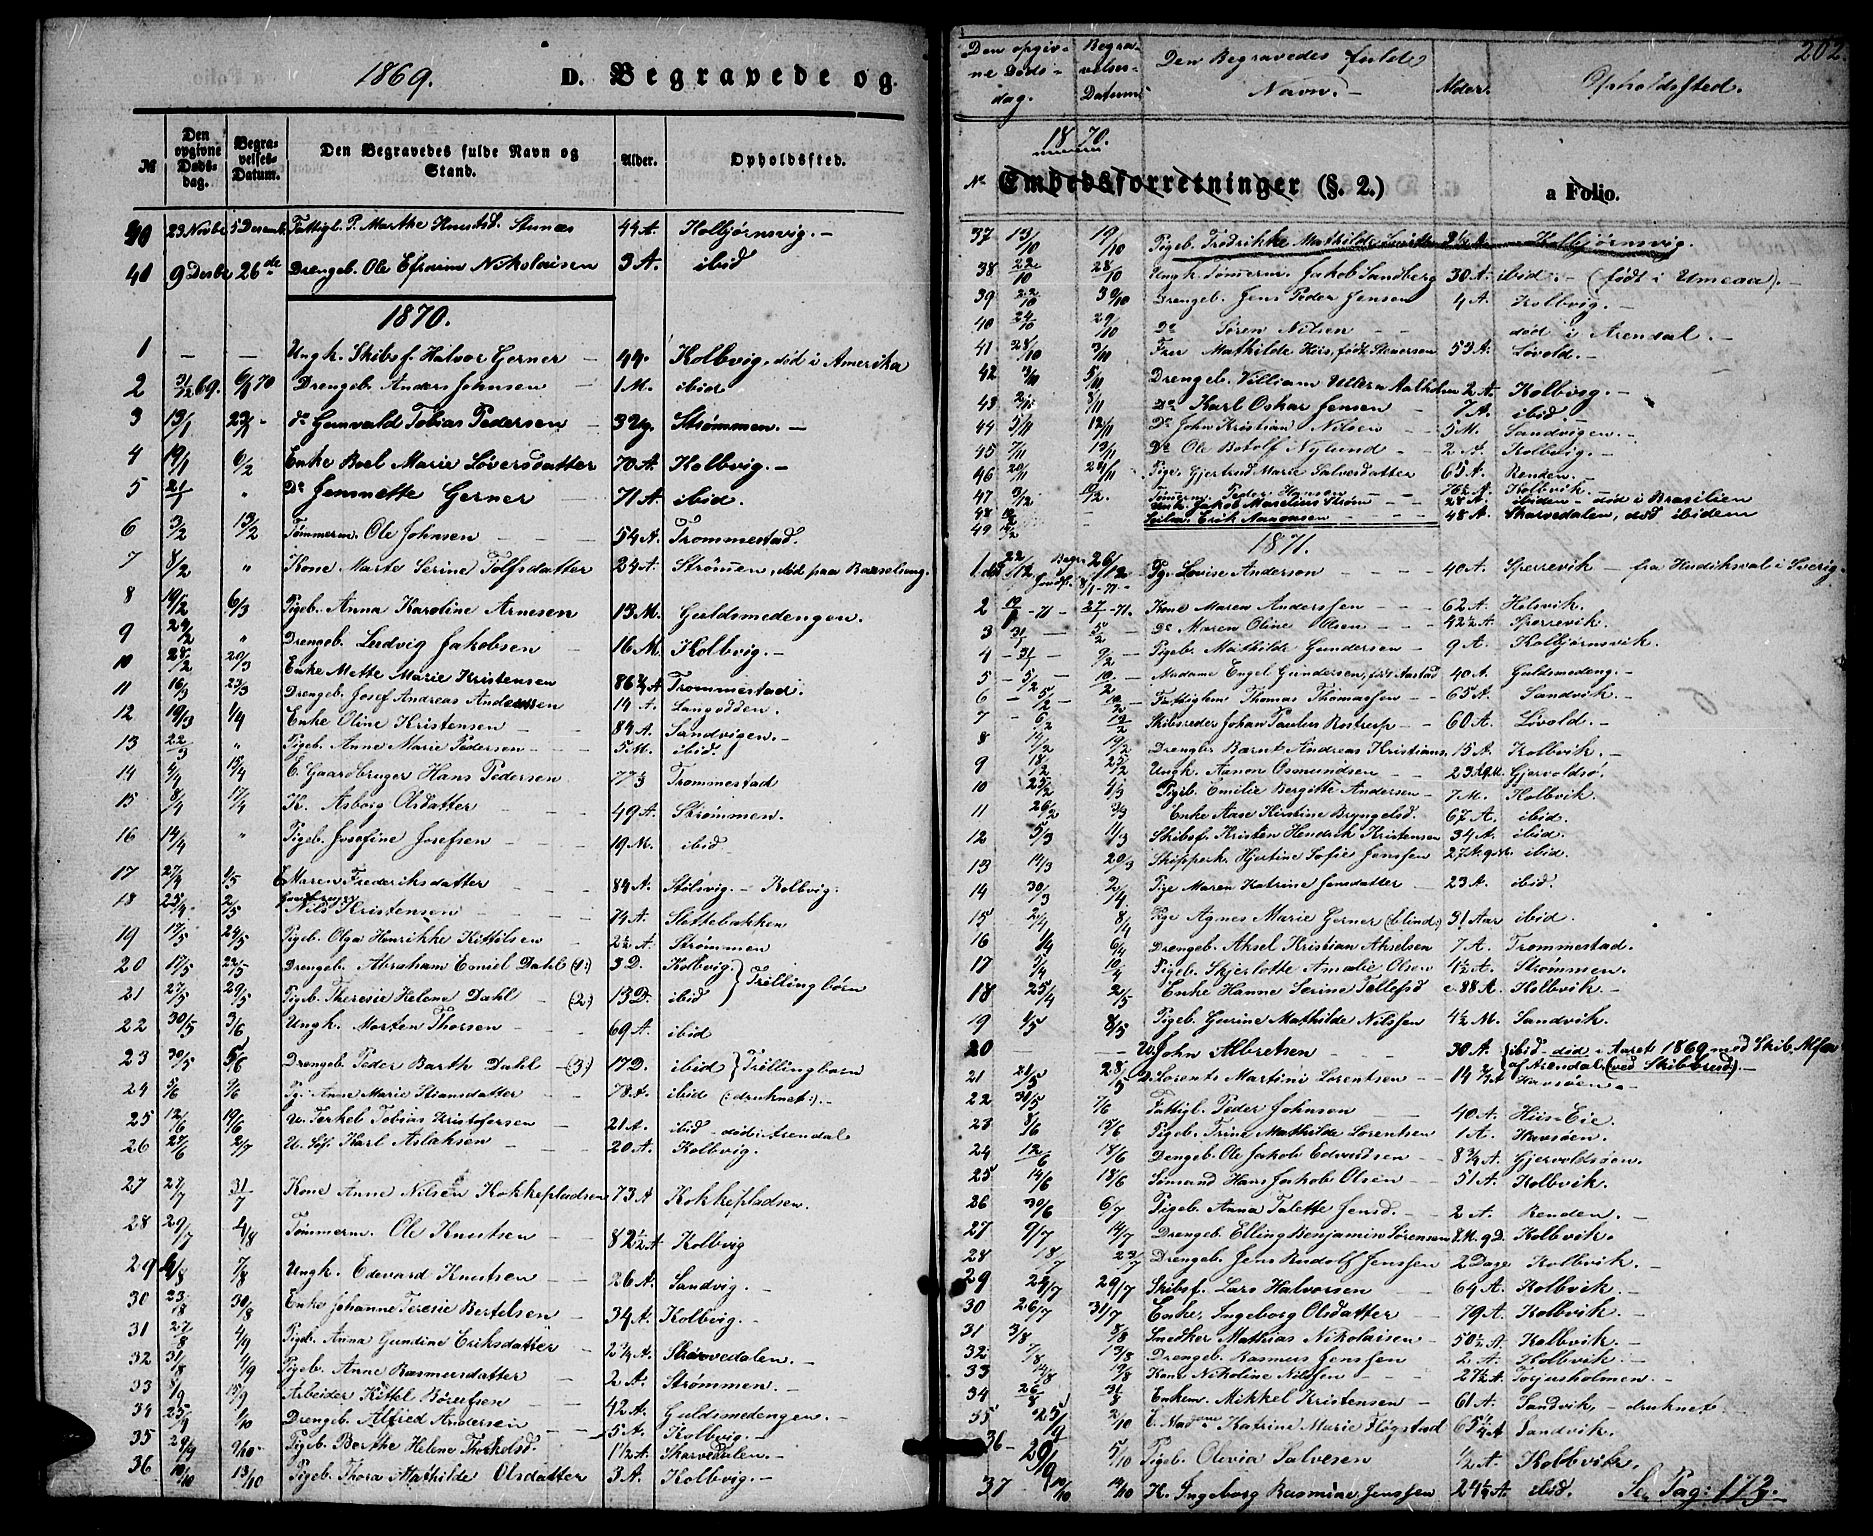 1869.
D. Begravede og
№ Den opgivne Dødsdag. Begravelses-Datum. Den Begravedes fulde Navn og Stand. Alder. Opholdssted.
40 23 Novbr 5 Decemb. Fattigl. P. Marthe Knutsd. 44 A. Kolbjørnsvig.-
41 9 Decbr 26de Drengeb. Ole Efraim Nikolaisen 3 A. ibid
1870.
1 - - Ungk. Skibsf. Halvor Gerner - 44. Kolbvig, død i Amerika
2 31/12 69. 6/1 70 Drengeb. Anders Johnsen - 1 M. ibid
3 13/1 do Gunvald Tobias Pedersen - Strømmen. -
4 19/1 6/2 Enke Boel Marie Løversdatter 70 A. Kolbvig.-
5 21/1 " Do Jennette Gerner - 71 A. ibid.
6 3/2 13/2 Tømmerm. Ole Johnsen - - - 54 A. Trommestad.
7 8/2 " Kone Marte Serine Tolfsdatter 24 A. Strømen, død paa Barselseng.
8 19/2 6/3 Pigeb. Anna Karoline Arnesen 13 M. Guldsmedengen.
9 24/2 " Drengeb. Ludvig Jakobsen - 16 M. Kolbvig.-
10 28/2 20/3 Enke Mette Marie Kristensen 86 3/4 A Trommestad.
11 16/3 23/3 Drengeb. Josef Andreas Andersen 14 A. Langodden.
12 19/3 1/4 Enke Oline Kristensen - 84 A. Sandvigen.-
13 22/3 " Pigeb. Anne Marie Pedersen - - 5 M. ibid.
14 4/4 15/4 E. Gaardbruger Hans Pedersen 77 1/2 Trommestad
15 8/4 17/4 K. Asborg Olsdatter - - 49 A. Strømmen.
16 14/4 " Pigeb. Josefine Josefsen - - 19 M. ibid
17 27/4 1/5 E Maren Frederiksdatter - - 84 A. Stølsvig. - Kolbvig.
18 25/4 2/5 Gaardbruger Nils Kristensen - - - 74 A. Slettebakken
19 17/5 24/5 Pigeb. Olga Henrikke Kittilsen - 2 1/2 A. Strømmen
20 17/5 22/5 Drengeb. Abraham Emiel Dahl (1:) 3 D. Kolbvig. } Trillingbørn
21 27/5 29/5 Pigeb. Theresie Helene Dahl - (2:) 13 D. ibid
22 30/5 3/6 Ungk. Morten Thorsen - - 69 A. ibid
23 30/5 5/6 Drengeb. Peder Barth Dahl - (3:) 17 D. ibid } Trillingbarn
24 5/6 9/6 Pg. Anne Marie Stiansdatter - - 78 A. ibid (: druknet:).-
25 12/6 19/6 U. Terkel Tobias Kristofersen - - 21 A. ibid - død i Arendal
26 27/6 2/7 U. Sjf. Karl Aslaksen - - 20 A. Kolbvig.
27 27/7 31/7 Kone Anne Nilsen Kokkepladsen 73 A Kokkepladsen.
28 29/7 4/8 Tømmerm. Ole Knutsen - - 82 1/2 A Kolbvig
29 4/8 7/8 Ungk. Edevard Knutsen - - 26 A. Sandvig.-
30 23/8 30/8 Enke Johanne Teresie Bertelsen - 34 A. Kolbvig. -
31 27/8 4/9 Pigeb. Anna Gundine Eriksdatter 2 3/4 A. Skarvedalen.-
32 31/8 4/9 Pigeb. Anne Rasmusdatter - 2 A. Strømmen. -
33 8/9 13/9 Arbeider Kittel Børufsen - 42 A. Guldsmedengen.-
34 25/9 2/10 Drengeb. Alfred Andersen - - 5 A. Kolbvig.-
35 28/9 9/10 Pigeb. Berthe Helene Thorkolsd. 1 1/2 A. Skarvedalen.-
36 10/10 13/10 Pigeb. Thora Mathilde Olsdatter 3 A. Kolbvig. -
202.
Den opgivne Dødsdag. Begravelses-Datum Den Begravedes fulde Navn.- Alder. Opholdssted.
1870.
№ Embedsforretninger (§. 2.) a Folio.
37 13/10 19/10 Pigeb. Fredrikke Mathilde Kolbjørnsvig.
38 22/10 28/10 Ungk. Tømerm. Jakob Sandberg 30 A. ibid.- (født i Umeaa).-
39 22/10 30/10 Drengeb. Jens Peder Jensen 4 A. Kolbvig.-
40 24/10 29/10 Do Søren Nilsen - - død i Arendal.-
41 28/10 3/11 Fru Mathilde Hiis, født 53 A. Løvold.-
42 5/11 Drengeb. Villiam Aalholm 2 A. Kolbvig.-
43 8/11 Do Karl Oskar Jensen - 7 A. ibid.-
44 5/11 12/11 Do John Kristian Nilsen - 5 M. Sandvigen.-
45 7/11 13/11 Do Ole Botolf Nylund - 2 A. Kolbvig.-
46 20/11 28/11 Pige. Gjertrud Marie Salvesdatter 65 A. Renden.-
47 3/12 Tømerm. Peder Hansen - - 76 1/2 A. Kolbvik.-
48 - Ungk. Jakob Marselius Strøm - - 28 A. ibiden - død i Brasilien
49 - Seilm. Erik Aanonsen - - - 48 A. Skarvedalen, død ibidem
1871.
1 død 22/12 Begr. 26/12 Jordf. 8/1-71- Pg. Lovise Anderson - - 40 A. Sperrevik - fra Hudiksval i Sverig.-
2 19/1 -71 27/1 -71. Kone Maren Anderssen - - - 62 A. Hølsvik.
3 31/1 - 5/2 Do Maren Oline Olsen - - 42 1/2 A. Sperrevik.-
4 - 31/1 - 9/2 - Pigeb. Mathilde Gundersen - 9 A. Kolbjørnsvik.
5 - 5/2 - 10/2 - Madame Engel Gundersen, født Aastad 40 A. Guldsmedeng.-
6 - 5/2 - 12/2 - Fattiglem Thomas Thomassen - 65 A. Sandvik.-
7 - 6/2 12/2 Skibsreder Johan Paulus Rostrup - - 60 A. Livold.-
8 14/2 19/2 Drengeb. Bærnt Andreas Kristians. 15 A. Kolbvik.-
9 18/2 25/2 Ungk. Aanon Osmundsen - - 23 A. Gjervoldsø.
10 25/2 4/3 Pigeb. Emilie Bergitte Andersen - 7 M. Kolbvik.
11 26/2 Enke Aase Kirstine Bryngelsd. 67 A. ibid.
12 5/3 11/3 Skibsf. Kristen Hendrik Kristensen 34 A. ibid.
13 14/3 20/3 Skipperk. Hjertine Sofie Jenssen - 27 A. ibid.
14 30/3 2/4 Pige Maren Katrine Jensdatter - 23 A. ibid.
15 2/4 8/4 Pige Agnes Marie Gerner (blind:) 31 Aar ibid.
16 1/4 6/4 Drengeb. Aksel Kristian Akselsen 7 A. Trommestad.
17 5/4 10/4 Pigeb. Skjerlotte Amalie Olsen 4 1/2 A. Strømmen.
18 25/4 2/5 Enke Hanne Serine Tellefsd. c. 88 A. Kolbvik.-
19 4/5 8/5 Pigeb. Gurine Mathilde Nilssen - 4 1/2 M. Sandvik.
20 - - U. John Albretsen - - 30 A. { ibid - død i Aaret 1869 med Skib. Alfa af Arendal (ved Skibbrud).-
21 21/5 28/5 D. Lorents Martini Lorentsen - 14 3/4 A Havsøen.-
22 30/5 7/6 Fattigl. Peder Johnson - - 40 A. Hiis-Eie
23 8/6 15/6 Pigeb. Trine Mathilde Lorentsen 1 A. Havsøen.
24 12/6 18/6 Drengeb. Ole Jakob Edvardsen - 8 3/4 A. Gjervoldsøen.
25 14/6 18/6 Sømand Hans Jakob Olsen - - 51 A. Kolbvik.
26 30/6 6/7 Pigeb. Anna Talette Jensd. - - 2 A. Renden.-
27 9/7 14/7 Drengeb. Elling Benjamin Sørensen 8 M. 9 D. Kolbvik.
28 18/7 23/7 Drengeb. Jens Rudolf Jenssen 2 Dage Kolbvik.-
29 24/7 29/7 Skibsf. Lars Halvorsen - - 69 A. Kolbvik.-
30 26/7 31/7 Enke, Ingeborg Olsdatter - - 79 A. Kolbvik
31 3/8 8/8 Snedker Mathias Nikolaisen - - 50 1/2 A. Kolbvik.-
32 7/8 13/8 Drengeb. Rasmus Jenssen - - 2 A. Kolbvik.-
33 Kone Nikoline Nilssen - - 27 1/2 A. Torjusholmen.-
34 26/8 31/8 Enkem. Mikkel Kristensen - - 61 A. Sandvik, - druknet.
35 25/9 2/10 E. Madame Katrine Marie Høgstad 65 1/4 A Sandvik.-
36 - 29/9 5/10 Pigeb. Olivia Salvesen 1/2 A. Kolbvik.
37 10/10 14/10 K. Ingeborg Rasmine Jenssen 24 1/2 A. ibid. Se Pag: 173.-